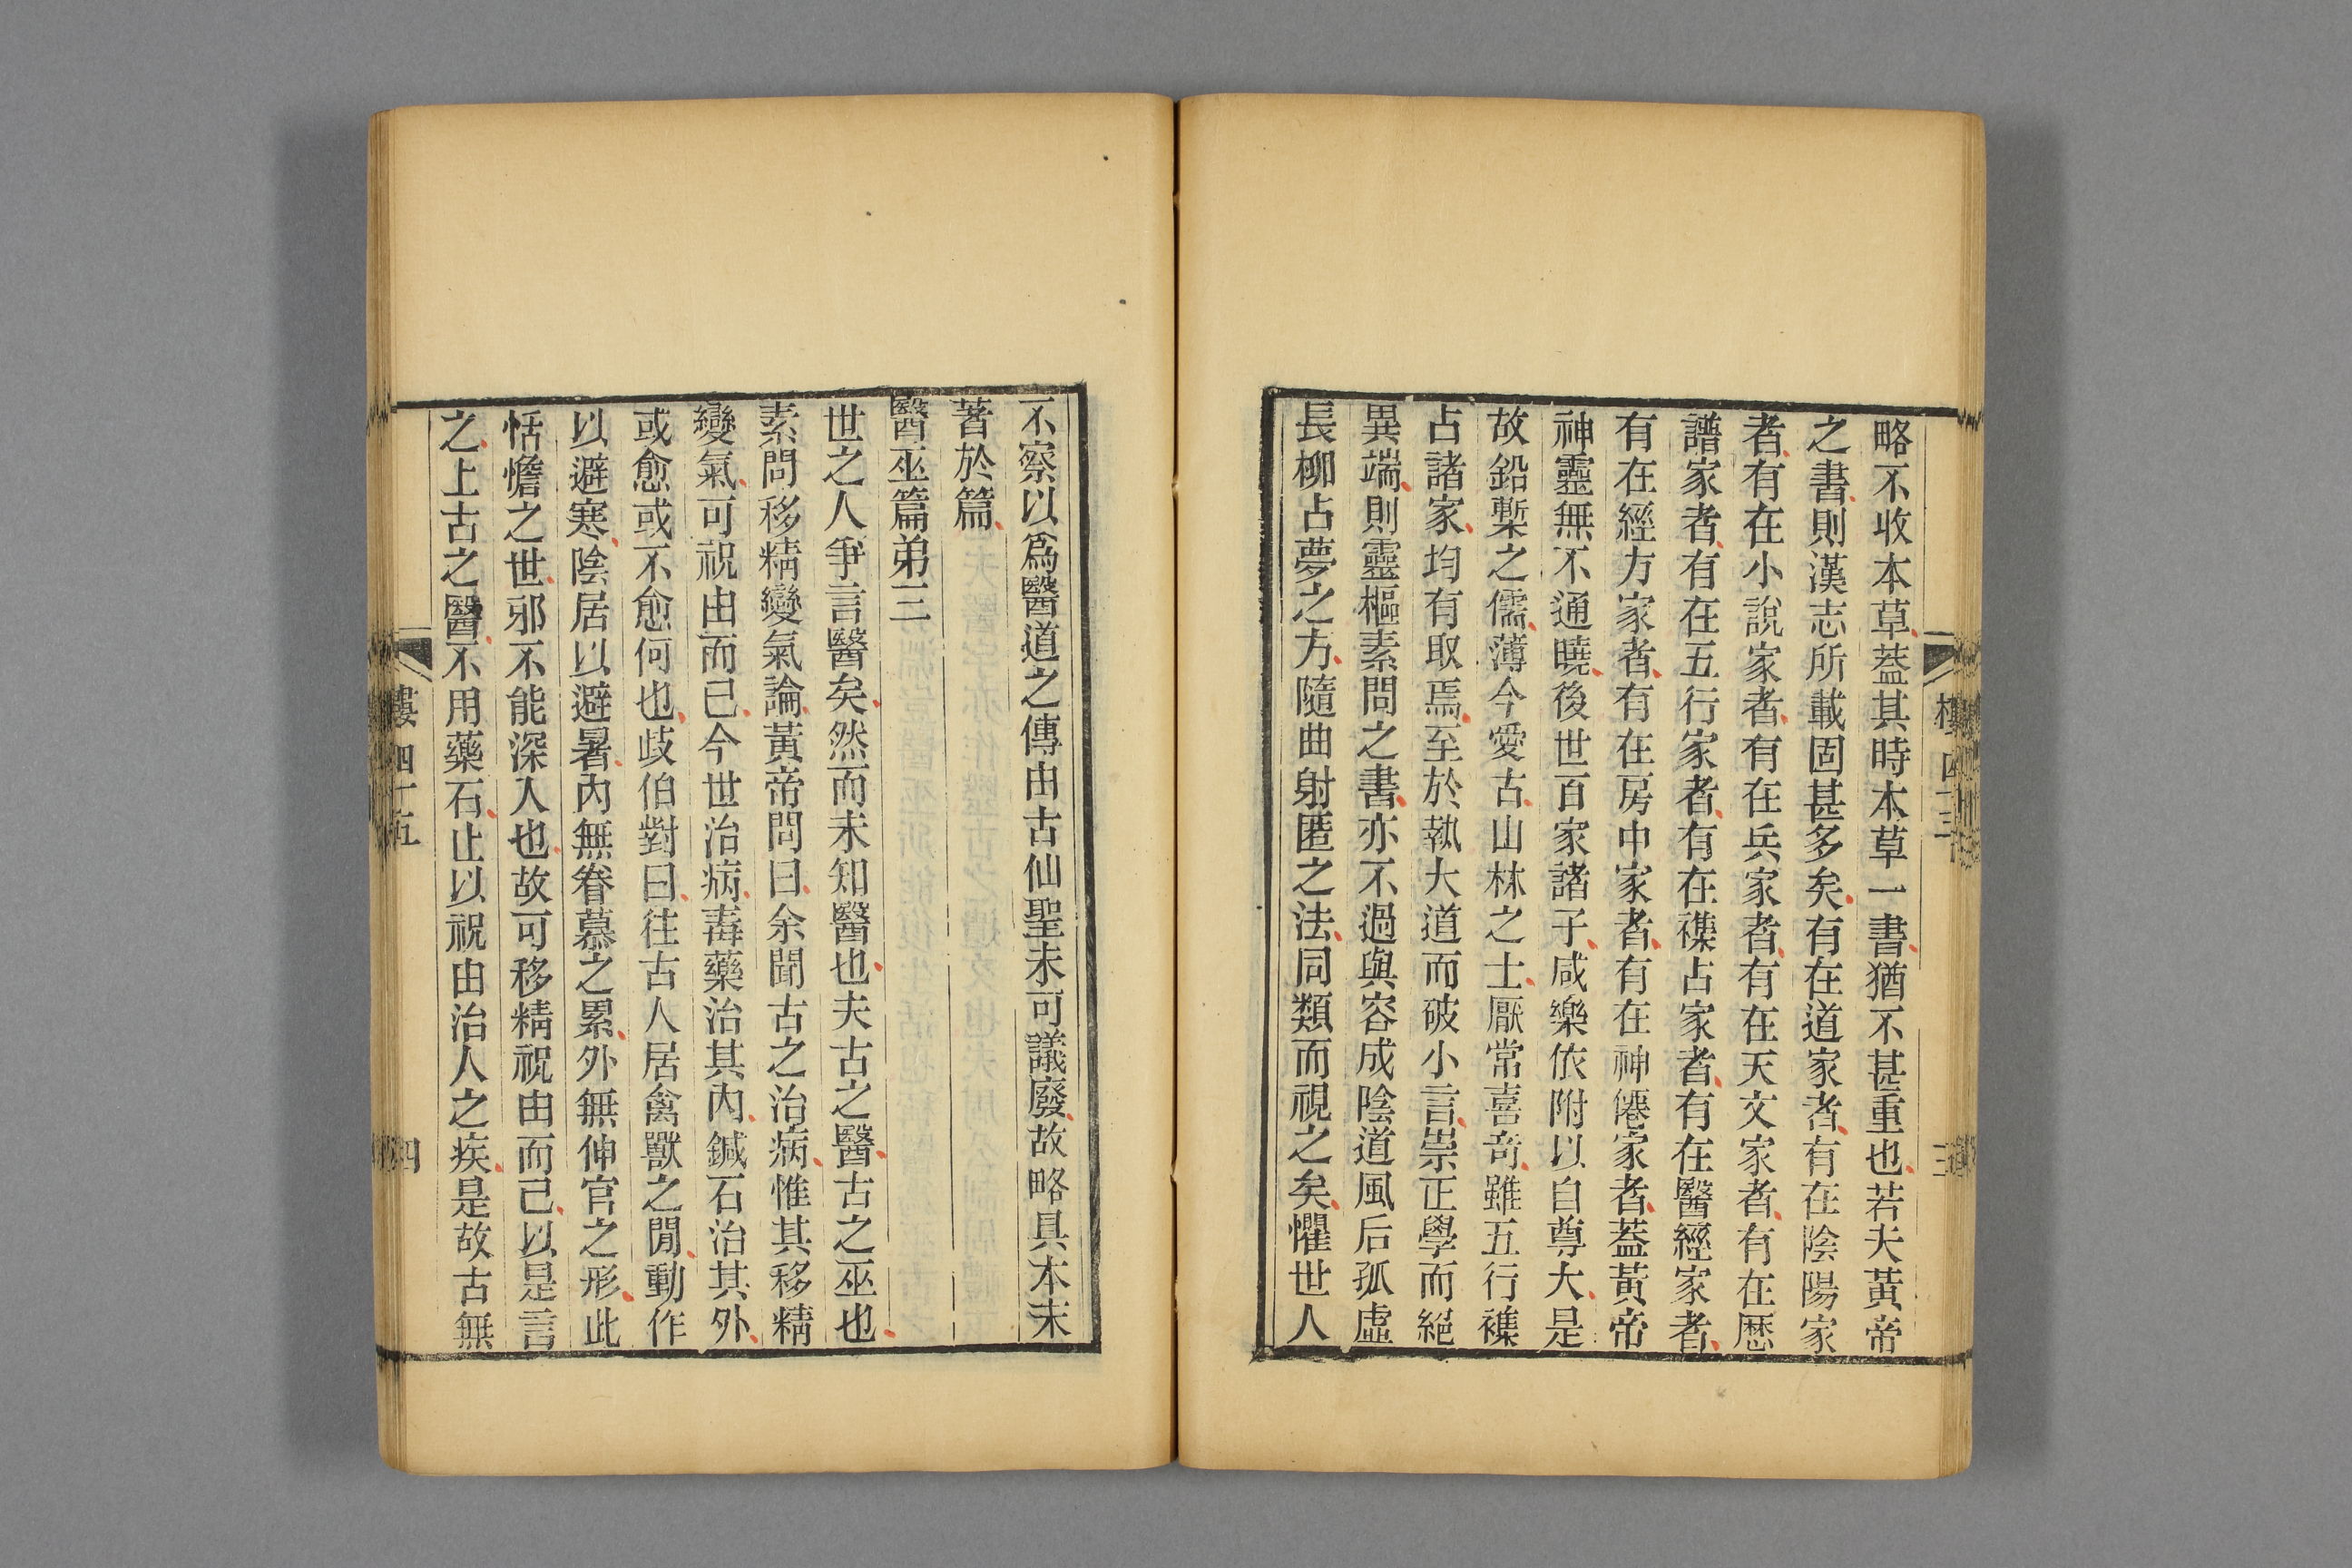 略不收本草蓋其時本草一書猶不甚重也若夫黃帝
之書則漢志所載固甚多矣有在道家者有在陰陽家
者有在小說家者有在兵家者有在天文家者有在厯
譜家者有在五行家者有在襍占家者有在醫經家者
有在經方家者有在房中家者有在神僊家者蓋黃帝
神靈無不通曉後世百家諸子咸樂依附以自尊大是
故鉛槧之儒薄今愛古山林之士厭常喜奇雖五行襍
占諸家均有取焉至於執大道而破小言崇正學而絕
異端則靈樞素問之書亦不過與容成陰道風后孤虛
長柳占夢之方隨曲射匿之法同類而視之矣懼世人
不察以爲醫道之傳由古仙聖未可議廢故略具本末
著於篇
醫巫篇弟三
世之人爭言醫矣然而未知醫也夫古之醫古之巫也
素問移精變氣論黃帝問曰余聞古之治病惟其移精
變氣可祝由而已今世治病毒藥治其內鍼石治其外
或愈或不愈何也歧伯對曰往古人居禽獸之閒動作
以避寒陰居以避暑內無眷慕之累外無伸官之形此
恬憺之世邪不能深入也故可移精祝由而已以是言
之上古之醫不用藥石止以祝由治人之疾是故古無
樓四十五
四